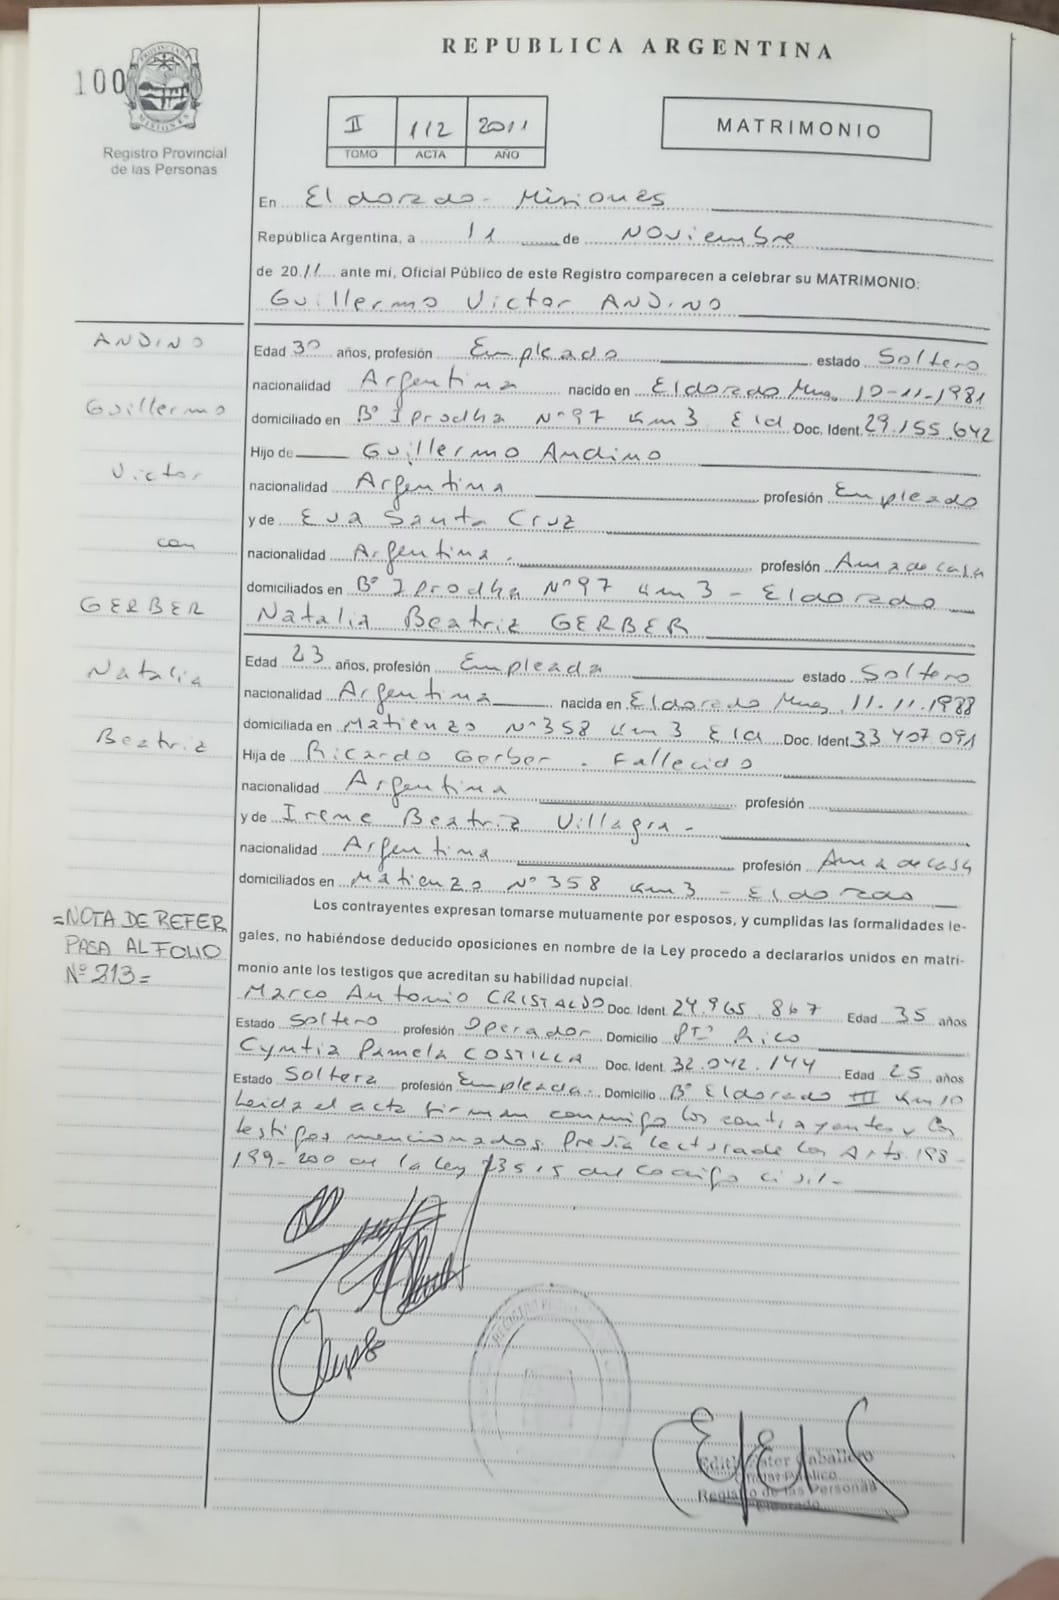 REPUBLICA ARGENTINA
100
PROVINCIA DE
MISIONES
Registro Provincial
de las Personas
II 112 2011
TOMO ACTA AÑO
MATRIMONIO
En Eldorado - Misiones
República Argentina, a 11 de Noviembre
de 2011 ante mí, Oficial Público de este Registro comparecen a celebrar su MATRIMONIO:
Guillermo Victor ANDINO
ANDINO
Guillermo
Victor
con
GERBER
Natalia
Beatriz
Edad 30 años, profesión Empleado estado Soltero
nacionalidad Argentina nacido en Eldorado Mnes, 10-11-1981
domiciliado en Bº Iprodha Nº 97 Km 3 Eld Doc. Ident. 29.155.642
Hijo de Guillermo Andino
nacionalidad Argentina profesión Empleado
y de Eva Santa Cruz
nacionalidad Argentina. profesión Ama de casa
domiciliados en Bº Iprodha Nº 97 Km 3 - Eldorado
Natalia Beatriz GERBER
Edad 23 años, profesión Empleada estado Soltero
nacionalidad Argentina nacida en Eldorado Mnes, 11.11.1988
domiciliada en Matienzo Nº 358 Km 3 Eld Doc. Ident. 33.407.091
Hija de Ricardo Gerber . Fallecido
nacionalidad Argentina profesión
y de Irene Beatriz Villagra -
nacionalidad Argentina profesión Ama de casa
domiciliados en Matienzo Nº 358 Km 3 - Eldorado
Los contrayentes expresan tomarse mutuamente por esposos, y cumplidas las formalidades le-
gales, no habiéndose deducido oposiciones en nombre de la Ley procedo a declararlos unidos en matri-
monio ante los testigos que acreditan su habilidad nupcial.
=NOTA DE REFER
PASA AL FOLIO
Nº 213=
Marco Antonio CRISTALDO Doc. Ident. 24.965.867 Edad 35 años
Estado Soltero profesión Operador Domicilio Pto Rico
Cyntia Pamela COSTILLA Doc. Ident. 32.042.144 Edad 25 años
Estado Soltera profesión Empleada. Domicilio Bº Eldorado III Km 10
Leida el acta firman conmigo los contrayentes y los
testigos mencionados. Previa lectura de los Arts. 198-
199-200 de la Ley 23515 del Codigo Civil-
Edith Ester Caballero
Registro de las Personas
Eldorado